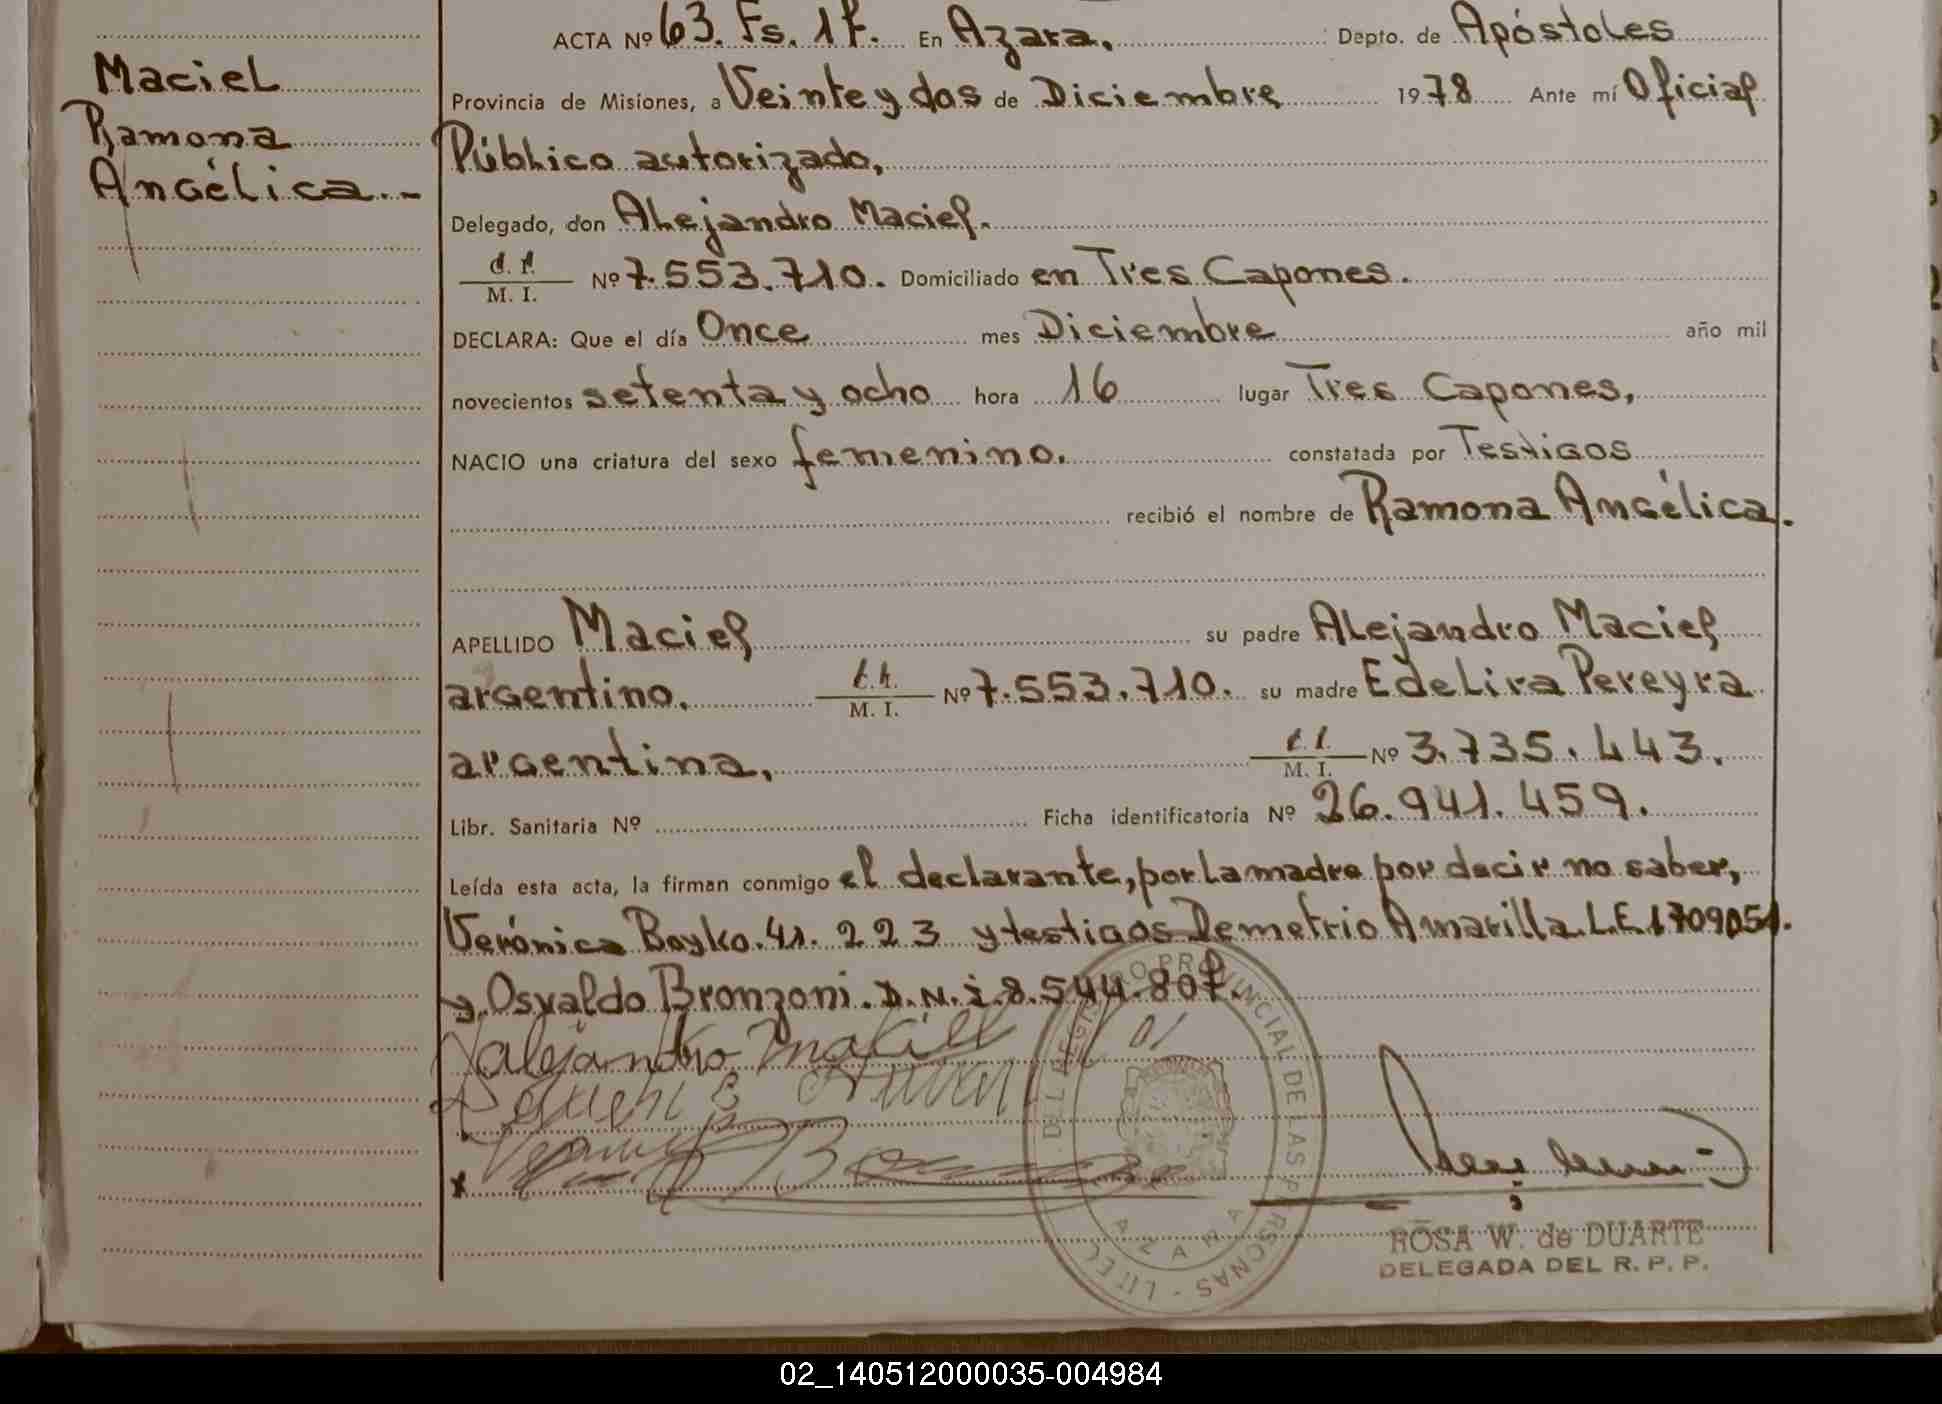 Maciel
Ramona
Angélica.-
ACTA Nº 63. Fs. 17. En Azara, Depto. de Apóstoles
Provincia de Misiones, a Veinte y dos de Diciembre 1978 Ante mí Oficial
Público autorizado,
Delegado, don Alejandro Maciel.
M. I. Nº 7.553.710. Domiciliado en Tres Capones.
DECLARA: Que el día Once mes Diciembre año mil
novecientos setenta y ocho hora 16 lugar Tres Capones,
NACIO una criatura del sexo femenino. constatada por Testigos
recibió el nombre de Ramona Angélica.
APELLIDO Maciel su padre Alejandro Maciel
argentino. M. I. Nº 7.553.710. su madre Edelira Pereyra
argentina, M. I. Nº 3.735.443.
Libr. Sanitaria Nº Ficha identificatoria Nº 26.941.459.
Leída esta acta, la firman conmigo el declarante, por la madre por decir no saber,
Verónica Boyko. 41.223 y testigos Demetrio Amarilla. L.E. 1709051.
y Osvaldo Bronzoni. D.N.i. 8.544.807.
DEL REGISTRO PROVINCIAL DE LAS PERSONAS
AZARA
ROSA W. de DUARTE
DELEGADA DEL R. P. P.
02_140512000035-004984